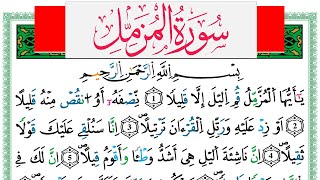 سُورَةُ الْمُزَّمِّل
بِسْمِ اللَّهِ الرَّحْمَٰنِ الرَّحِيمِ
يَا أَيُّهَا الْمُزَّمِّلُ قُمِ الَّيْلَ إِلَّا قَلِيلًا ۝١ نِّصْفَهُ أَوِ انقُصْ مِنْهُ قَلِيلًا
۝٢ أَوْ زِدْ عَلَيْهِ وَرَتِّلِ الْقُرْءَانَ تَرْتِيلًا ۝٣ إِنَّا سَنُلْقِي عَلَيْكَ قَوْلًا
ثَقِيلًا ۝٤ إِنَّ نَاشِئَةَ الَّيْلِ هِيَ أَشَدُّ وَطْئًا وَأَقْوَمُ قِيلًا ۝٥ إِنَّ لَكَ فِي